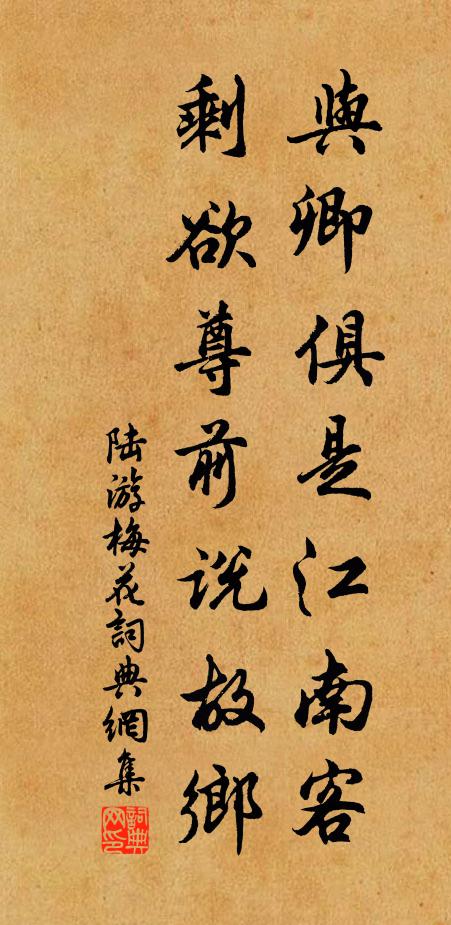 與卿俱是江南客
剩欲尊前説故鄉
陆游梅花詞典網集
詞典網印